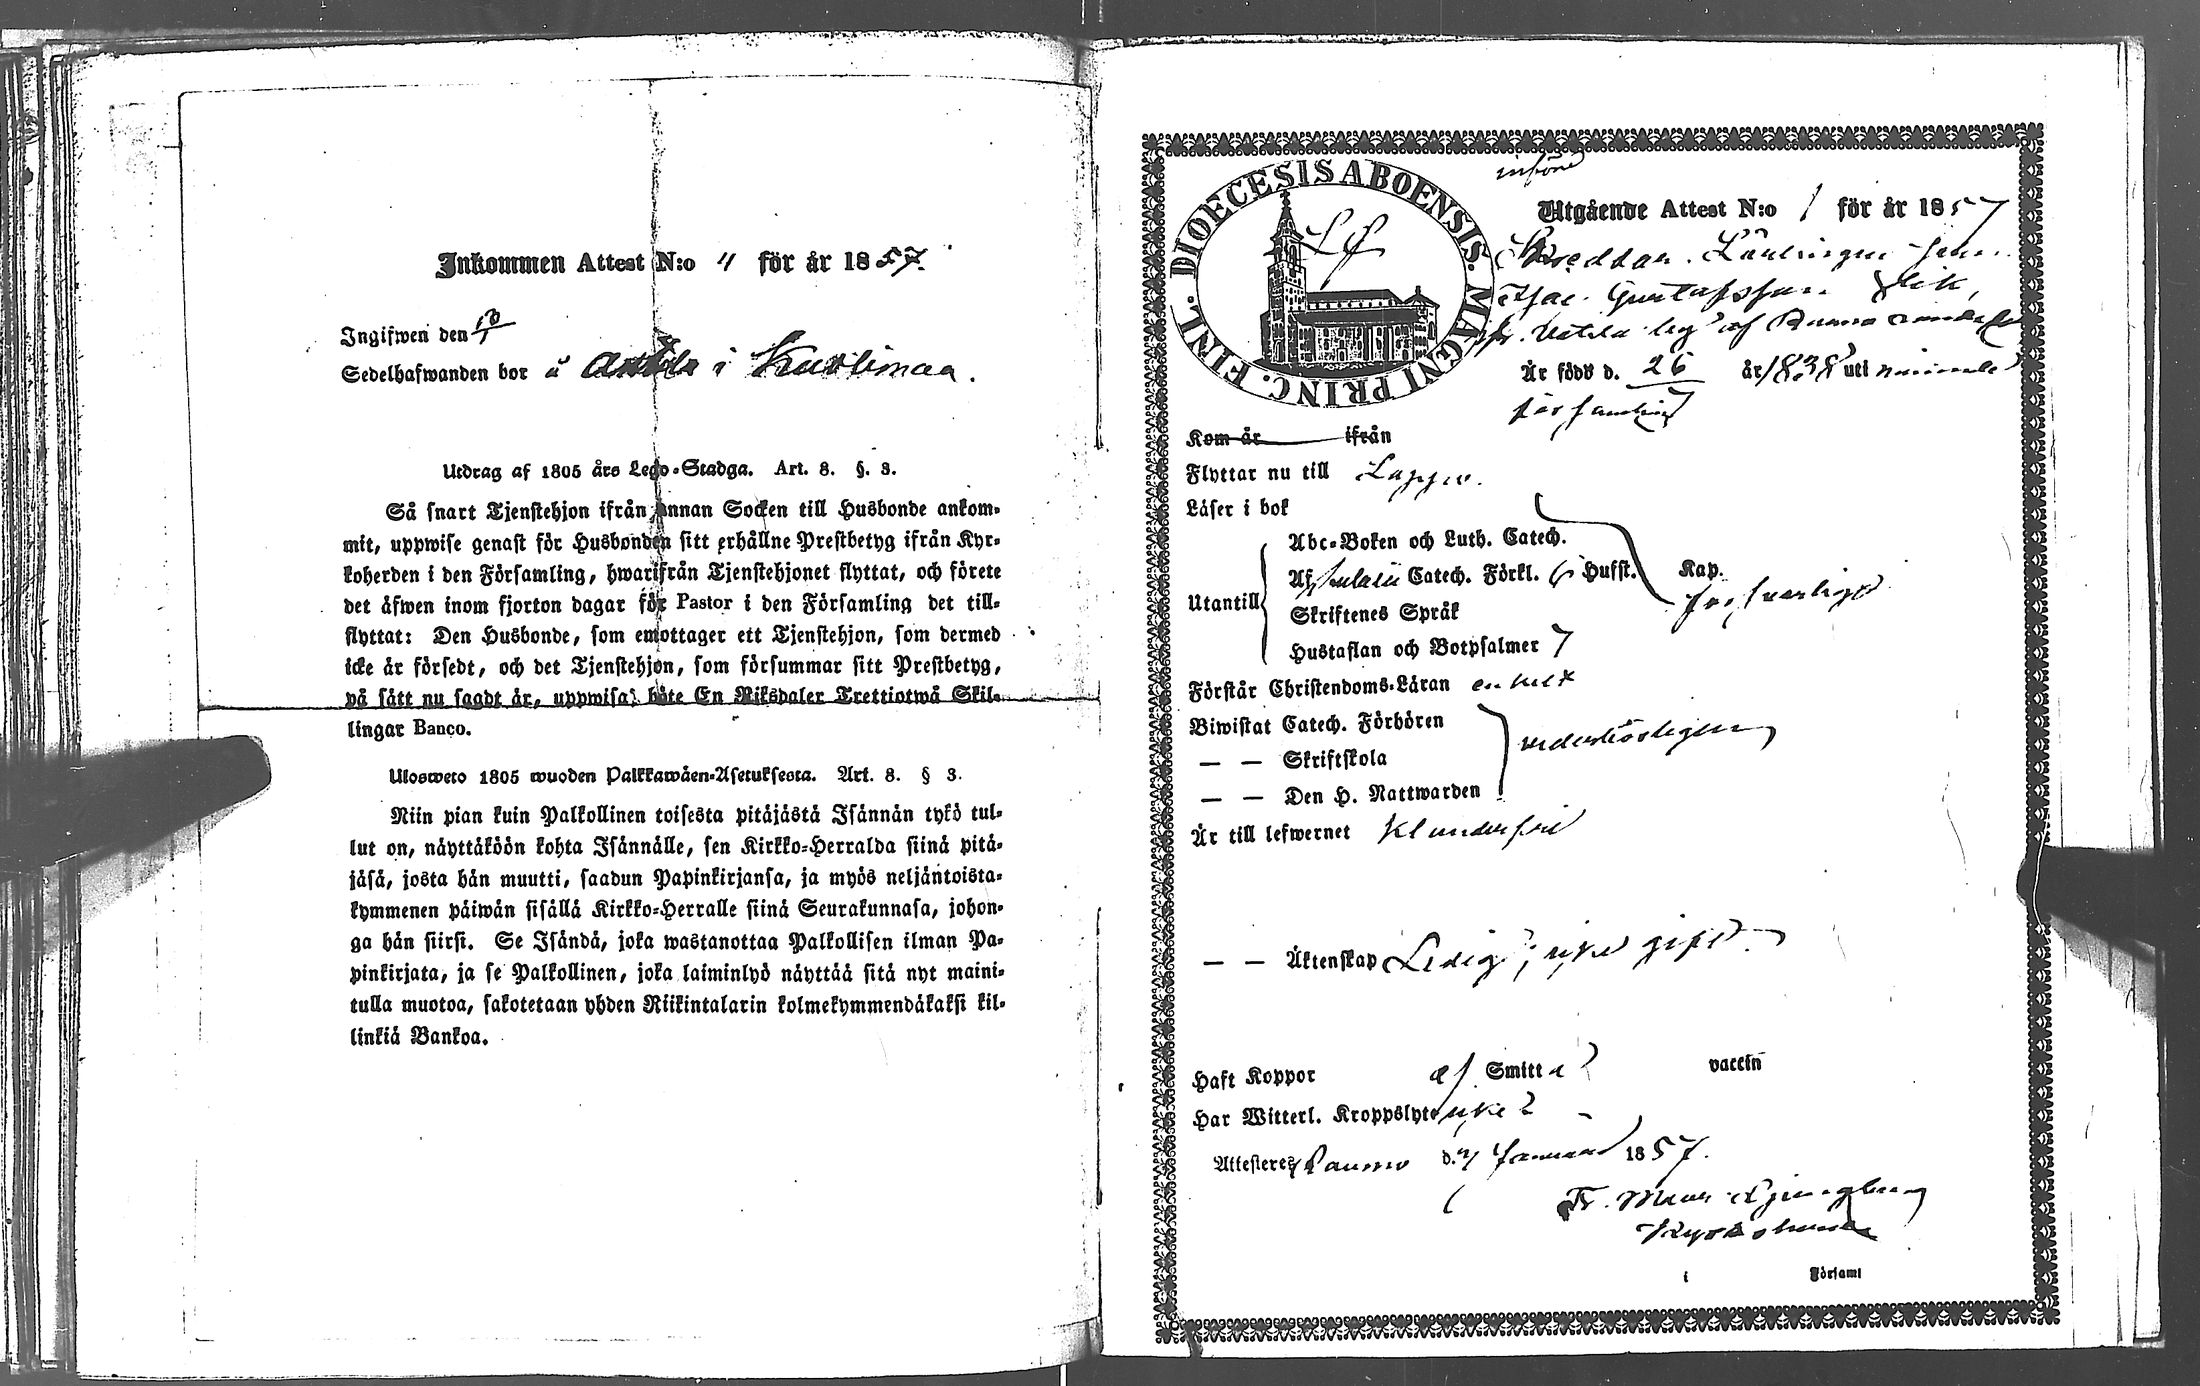 Inkommen Attest N:o 4 för år 1857.
Ingifwen den
Sedelhafwanden bor å i Kuolimaa.
Utdrag af 1805 års Lego-Stadga. Art. 8. §. 3.
Så snart Tjenstehjon ifrån annan Socken till Husbonde ankom-
mit, uppwise genast för Husbonden sitt erhållne Prestbetyg ifrån Kyr-
koherden i den Församling, hwarifrån Tjenstehjonet flyttat, och förete
det äfwen inom fjorton dagar för Pastor i den Församling det till-
flyttat: Den Husbonde, som emottager ett Tjenstehjon, som dermed
icke är försedt, och det Tjenstehjon, som försummar sitt Prestbetyg,
på sätt nu sagdt är, uppwisa, böte En Riksdaler Trettiotwå Skil-
lingar Banco.
Ulosweto 1805 wuoden Palkkawäen-Asetuksesta. Art. 8. § 3.
Niin pian kuin Palkollinen toisesta pitäjästä Isännän tykö tul-
lut on, näyttäköön kohta Isännälle, sen Kirkko-Herralda siinä pitä-
jäsä, josta hän muutti, saadun Papinkirjansa, ja myös neljäntoista-
kymmenen päiwän sisällä Kirkko-Herralle siinä Seurakunnasa, johon-
ga hän siirsi. Se Isändä, joka wastanottaa Palkollisen ilman Pa-
pinkirjata, ja se Palkollinen, joka laiminlyö näyttää sitä nyt maini-
tulla muotoa, sakotetaan yhden Riikintalarin kolmekymmendäkaksi kil-
linkiä Bankoa.
DIOECESIS ABOENSIS. MAGNI PRINC. FINL.
införd
Utgående Attest N:o 1 för år 1857
Skreddar Lärlingen
Isac Gustafsson Flik,
af Raumo
Är född d. 26 år 1838 uti
församling
Kom år ifrån
Flyttar nu till Lappo.
Läser i bok
Utantill
Abc-Boken och Luth. Catech.
Af Catech. Förkl. 6 Hufst. Kap.
försvarligt
Skriftenes Språk
Hustaflan och Botpsalmer 7
Förstår Christendoms-Läran enkelt
Biwistat Catech. Förhören
— — Skriftskola
— — Den H. Nattwarden
wederbörligen
Är till lefwernet klanderfri
— — Äktenskap Ledig; icke gift.
Haft Koppor af Smitta? vaccin
Har Witterl. Kroppslyte icke?
Attesteres Raumo d. 7 Januari 1857.
Fr. Maur. Ljungberg
Kyrkoherde
i Församl